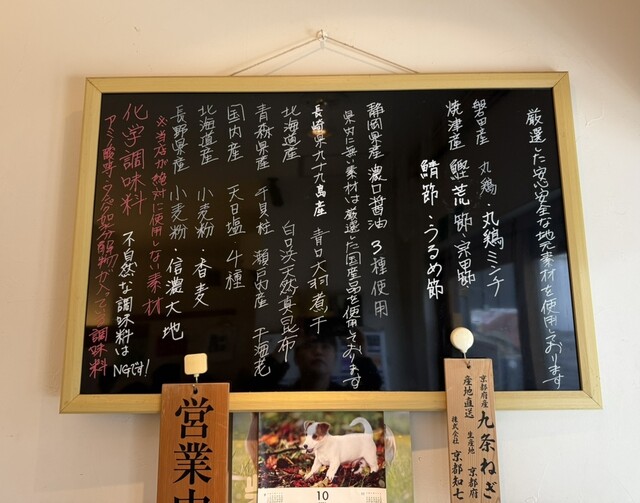 厳選した安心安全な地元素材を使用しております
磐田産 丸鶏・丸鶏ミンチ
焼津産 鰹荒節・宗田節
鯖節・うるめ節
静岡県産 濃口醤油 3種使用
県内に無い素材は厳選した国産品を使用しております
長崎県九十九島産 青口大羽煮干
北海道産 白口浜天然真昆布
青森県産 干貝柱 瀬戸内産 干海老
国内産 天日塩・4種
北海道産 小麦粉・香麦
長野県産 小麦粉・信濃大地
※当店が絶対に使用しない素材
化学調味料 不自然な調味料はNGです!
アミノ酸等・タンパク加水分解物が入っている調味料
営業中
10
京都府産 九条ねぎ
産地直送 生産地 京都府
株式会社 京都知七